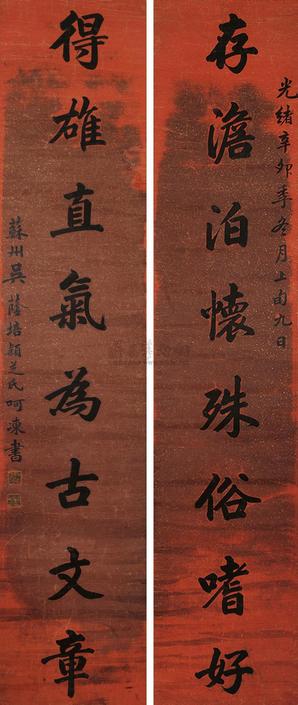 光緒辛卯季冬月上旬九日
存澹泊懷殊俗嗜好
得雄直氣為古文章
蘇州吳蔭培穎芝氏呵凍書